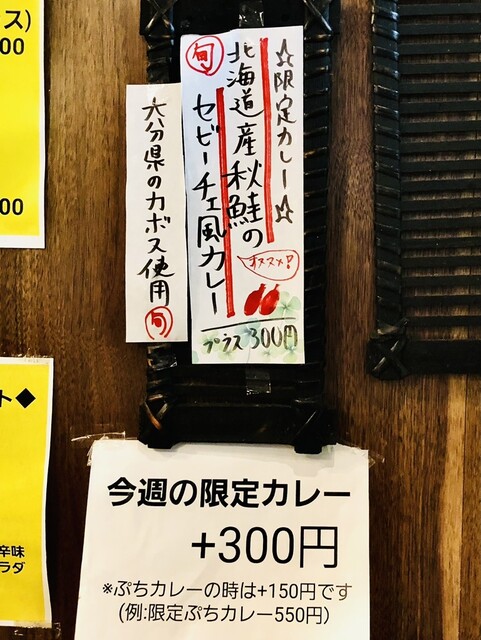 ☆限定カレー☆
旬
北海道産秋鮭の
セビーチェ風カレー
オススメ!
プラス300円
大分県のカボス使用
旬
今週の限定カレー
+300円
※ぷちカレーの時は+150円です
(例:限定ぷちカレー550円)
ス)
00
00
ト◆
辛味
ラダ